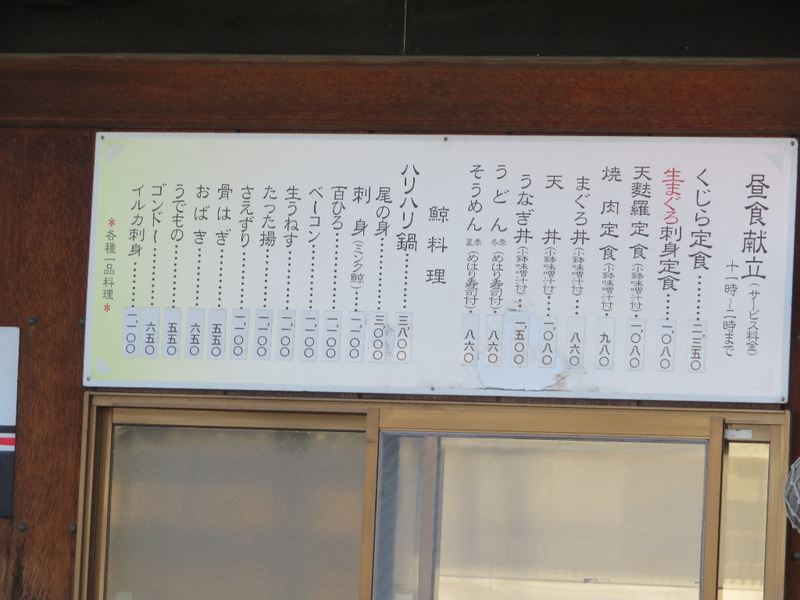 昼食献立(サービス料金)
十一時〜二時まで
くじら定食………二、三五〇
生まぐろ刺身定食……一、〇八〇
天麩羅定食(小鉢味噌汁付)・一、〇八〇
焼肉定食(小鉢味噌汁付)・九八〇
まぐろ丼(小鉢味噌汁付)・八六〇
天丼(小鉢味噌汁付)・一、〇八〇
うなぎ丼(小鉢味噌汁付)・二、五〇〇
うどん冬季(めはり寿司付)・八六〇
そうめん夏季(めはり寿司付)・八六〇
鯨料理
ハリハリ鍋………三、八〇〇
尾の身………三、〇〇〇
刺身(ミンク鯨)……一、〇〇〇
百ひろ………一、一〇〇
ベーコン………一、一〇〇
生うねす………一、一〇〇
たった揚………一、一〇〇
さえずり………一、一〇〇
骨はぎ………五五〇
おばき………六五〇
うでもの………五五〇
ゴンドー………六五〇
イルカ刺身………一、一〇〇
*各種一品料理*